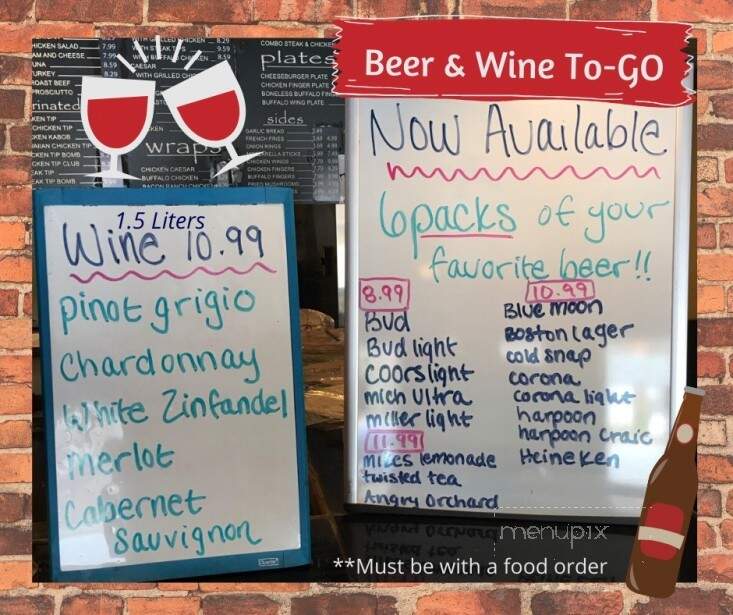 Beer & Wine To-GO
HICKEN SALAD 7.99
AM AND CHEESE 7.99
UNA 8.59
URKEY 8.29
OAST BEEF
PROSCIUTTO
rinated
KEN TIP
CHICKEN TIP
KEN KABOB
CKEN TIP BOMB
CKEN TIP CLUB
EAK TIP
EAK TIP BOMB
8.29
9.59
CAESAR
WITH GRILLED
wraps
CHICKEN CAESAR
BUFFALO CHICKEN
COMBO STEAK & CHICKE
plates
CHEESEBURGER PLATE
CHICKEN FINGER PLATE
BONELESS BUFFALO
BUFFALO WING PLATE
sides
GARLIC BREAD
FRENCH FRIES
ONION RINGS
CHICKEN WINGS
CHICKEN FINGERS
BUFFALO FINGERS
FRIED MUSHROOMS
1.5 Liters
Wine 10.99
pinot grigio
Chardonnay
White Zinfandel
merlot
Cabernet
sauvignon
Now Available
6packs of your
favorite beer!!
8.99
Bud
Bud light
Coors light
mich Ultra
miller light
11.99
mikes lemonade
twisted tea
Angry Orchard
10.99
Blue moon
Boston lager
cold snap
corona
corona light
harpoon
harpoon craic
Heineken
menupix
**Must be with a food order